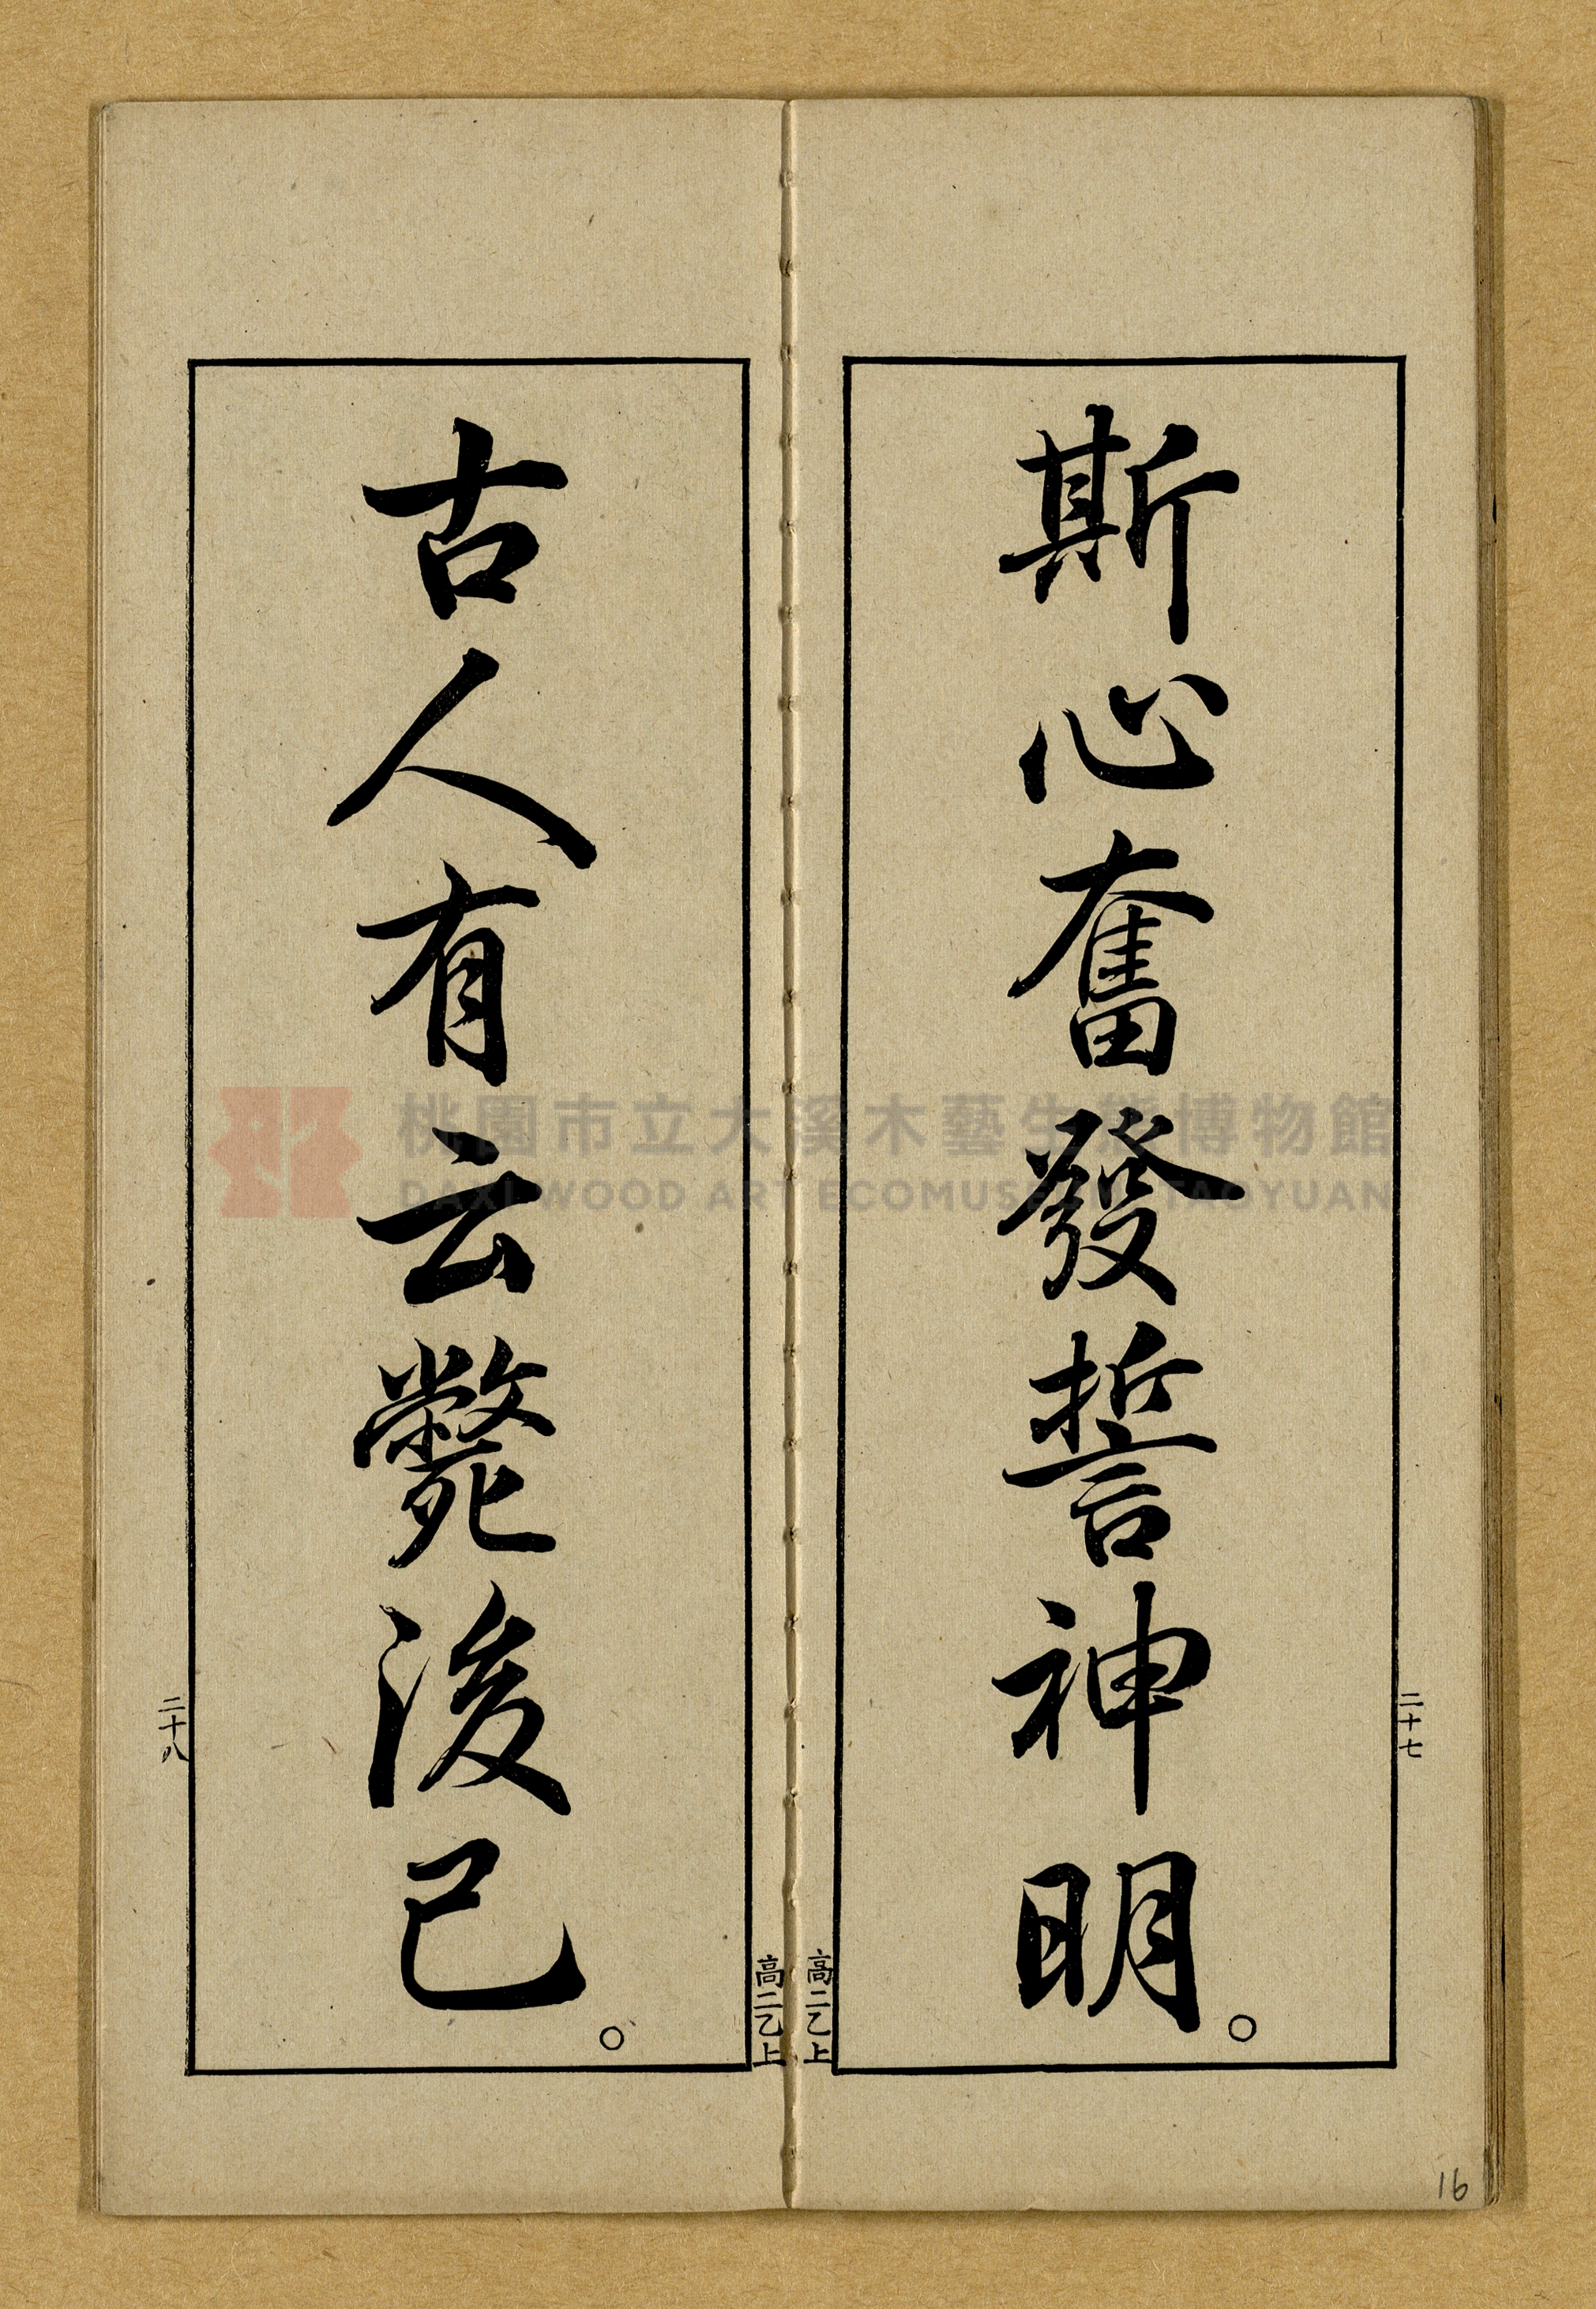 斯心奮發誓神明。
二十七
高二乙上
古人有云斃後已。
二十八
高二乙上
16
桃園市立大溪木藝生態博物館
DAXI WOOD ART ECOMUSEUM, TAOYUAN